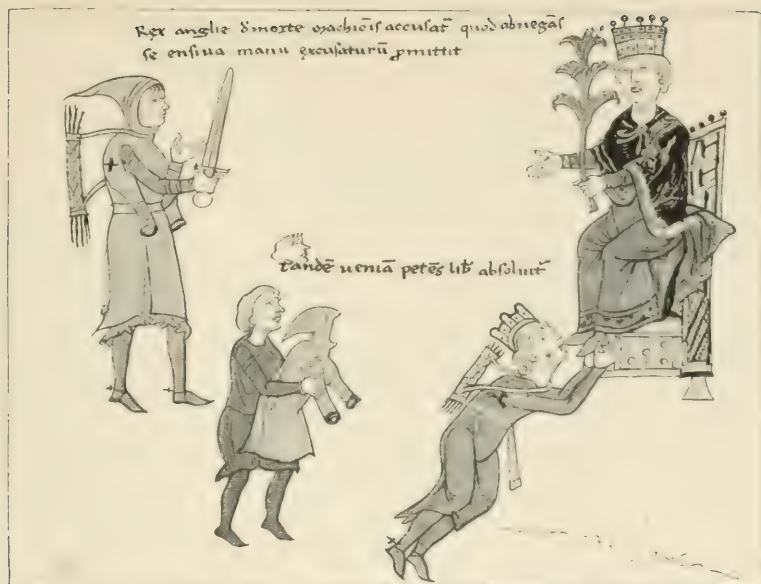 Rex anglie d̄ morte marchiōis accusat᷑ quod abnegās
se ensiua manu excusaturū ꝓmittit
tandē ueniā petēs lib̄ absoluit᷑